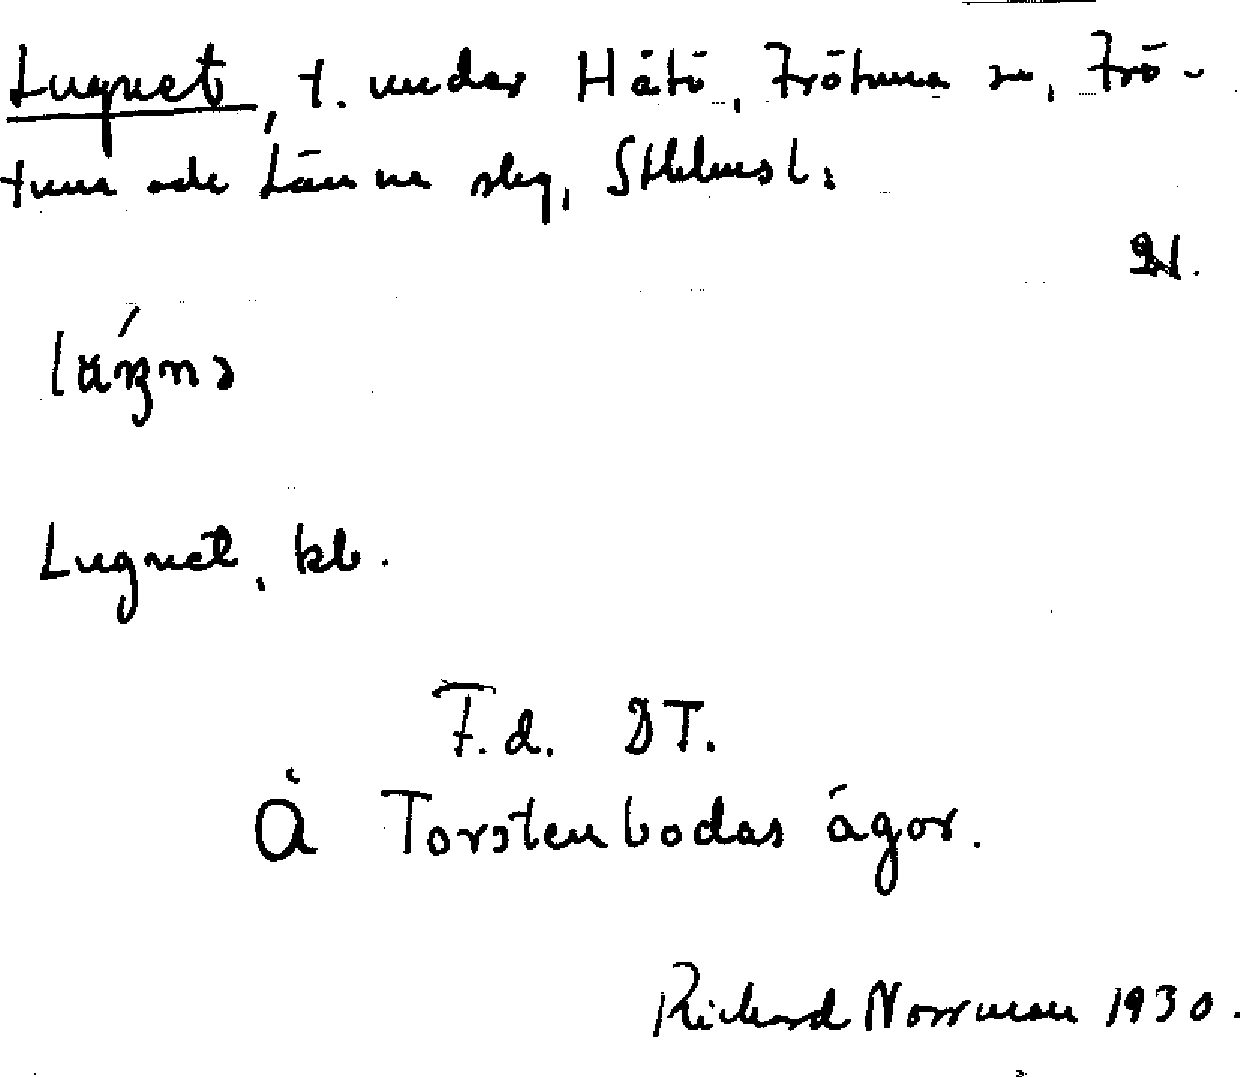 Lugnet, t. under Håtö, Frötuna sn, Frö-
tuna och Länna slg, Sthlms l.
N.
Lugnet, kb.
F.d. BT.
Å Torstenbodas ägor.
Richard Norrman 1930.